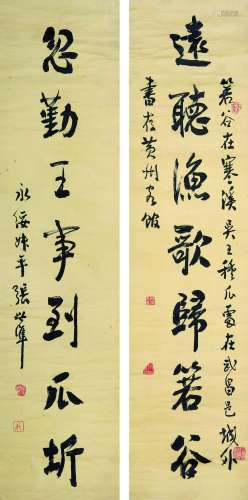 遠聽漁歌歸箬谷
箬谷在寒溪吳王種瓜處在武昌邑城外
書於黃州客館
忽勤王事到瓜圻
永綏妹平張世準